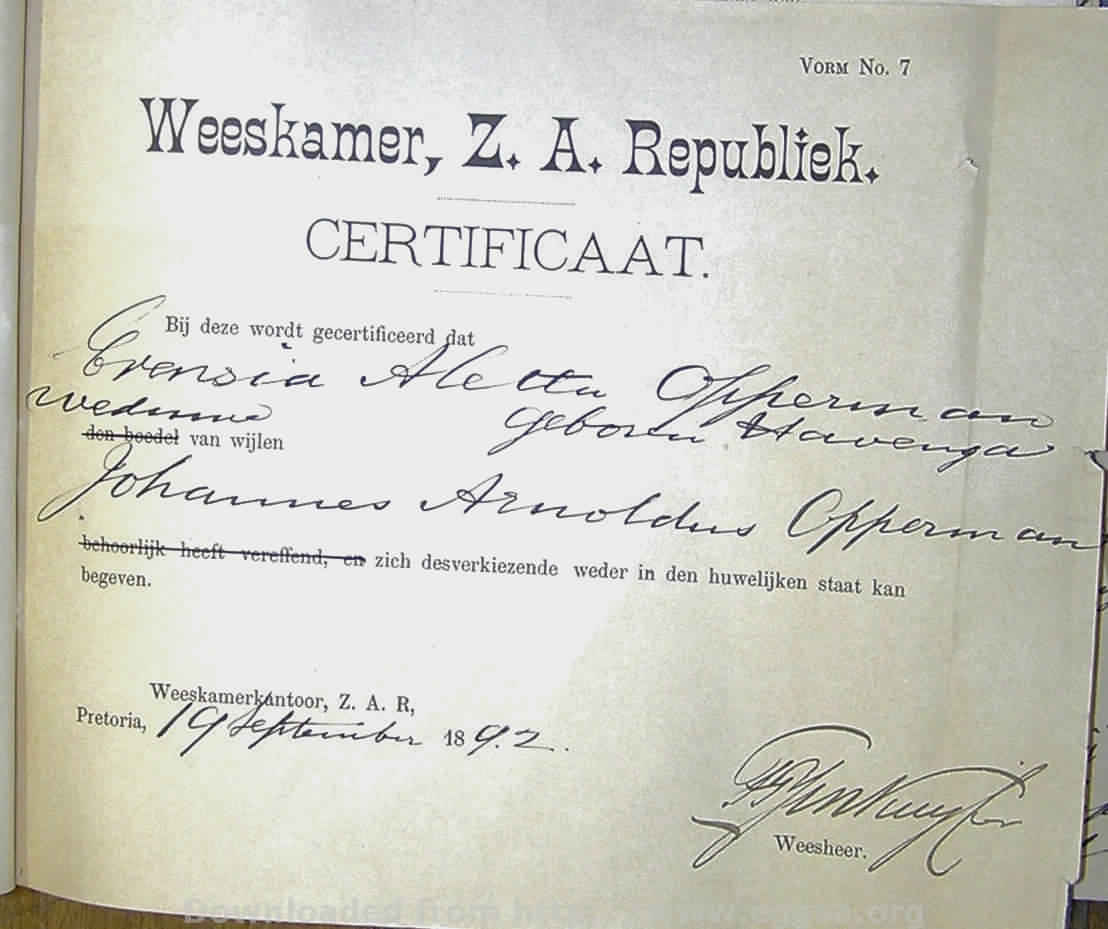 VORM No. 7
Weeskamer, Z. A. Republiek.
CERTIFICAAT.
Bij deze wordt gecertificeerd dat
Crensia Aletta Opperman
weduwe geboren Havenga
den boedel van wijlen
Johannes Arnoldus Opperman
behoorlijk heeft vereffend, en zich desverkiezende weder in den huwelijken staat kan
begeven.
Weeskamerkantoor, Z. A. R,
Pretoria, 19 September 1892.
Weesheer.
Downloaded from